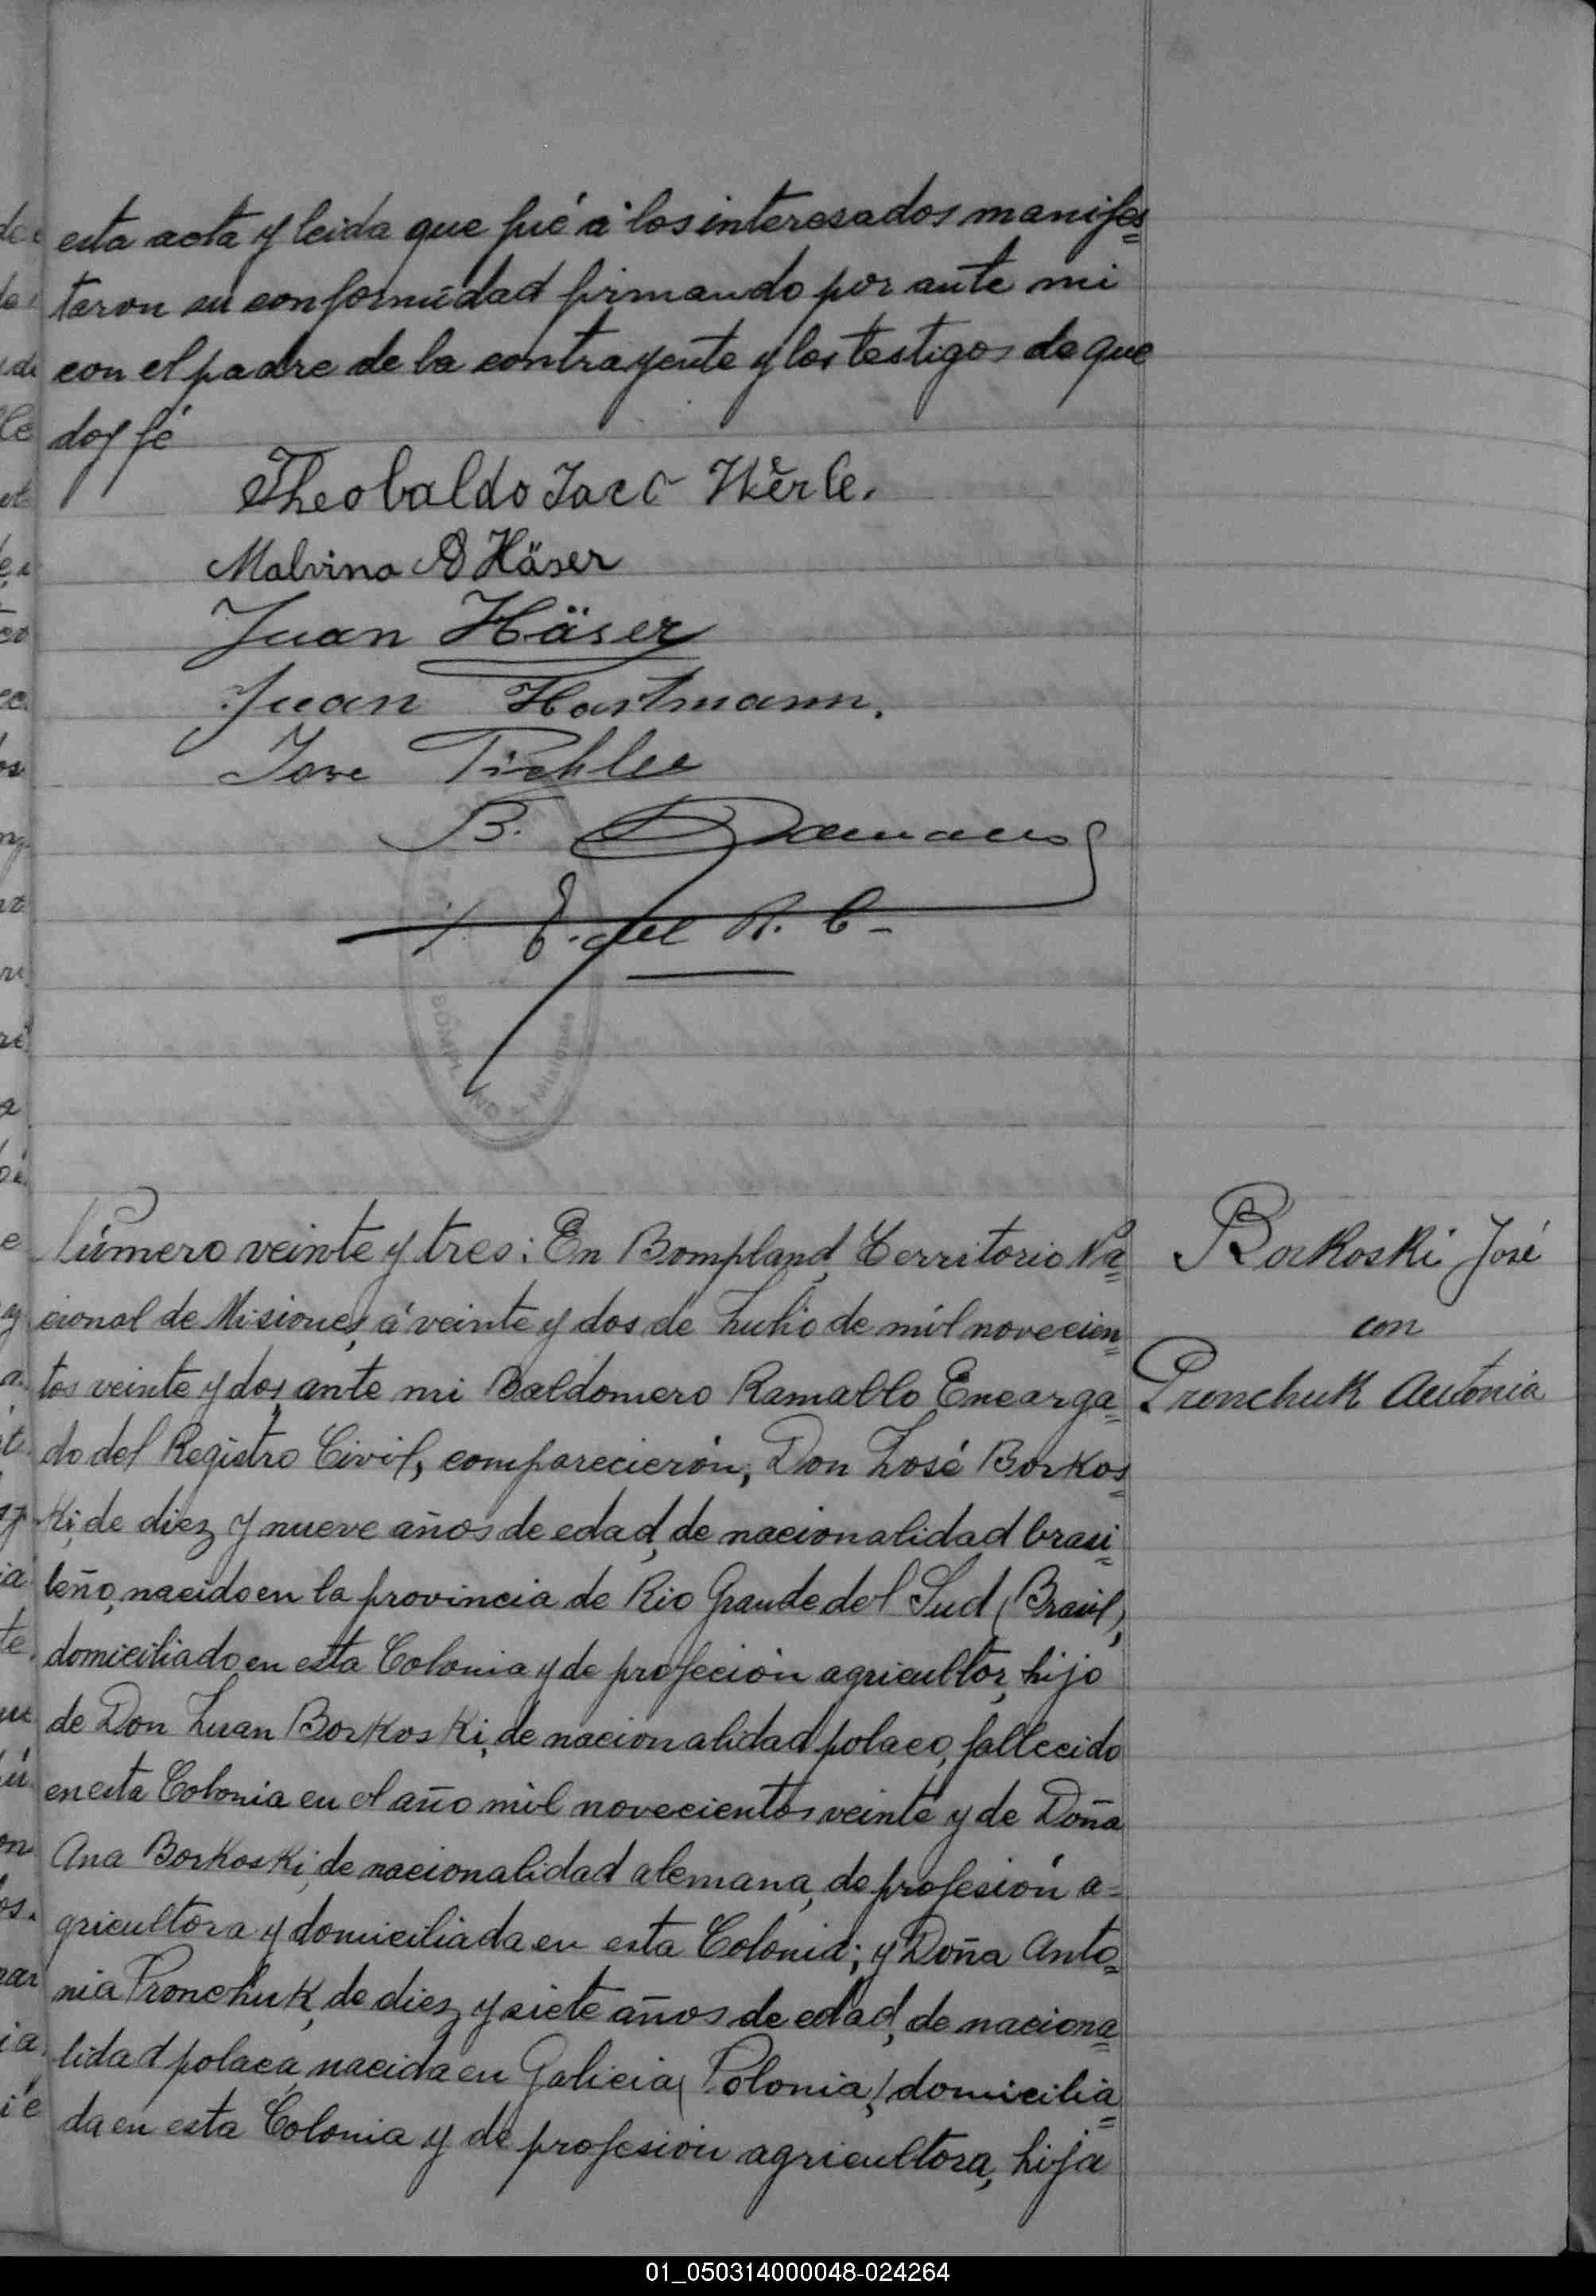 esta acta y leida que fué á los interesados manifes=
taron su conformidad firmando por ante mi
con el padre de la contrayente y los testigos de que
doy fé
Theobaldo Jaco Werle.
Malvina Häser
Juan Häser
Juan Hartmann.
Jose Pichler
B.
E. del R. C-
BOMPLAND - Misiones
Número veinte y tres: En Bompland, Territorio Na=
cional de Misiones, á veinte y dos de Julio de mil novecien=
tos veinte y dos, ante mi Baldomero Ramallo Encarga=
do del Registro Civil, comparecierón, Don José Borkos=
ki, de diez y nueve años de edad, de nacionalidad brasi=
leño, nacido en la provincia de Rio Grande del Sud (Brasil),
domiciliado en esta Colonia y de profeción agricultor, hijo
de Don Juan Borkoski, de nacionalidad polaco, fallecido
en esta Colonia en el año mil novecientos veinte y de Doña
Ana Borkoski, de nacionalidad alemana, de profesión a=
gricultora y domiciliada en esta Colonia; y Doña Anto=
nia Pronchuk, de diez y siete años de edad, de naciona=
lidad polaca, nacida en Galicia (Polonia), domicilia=
da en esta Colonia y de profesión agricultora, hija
Borkoski José
con
Prunchuk Antonia
01_050314000048-024264